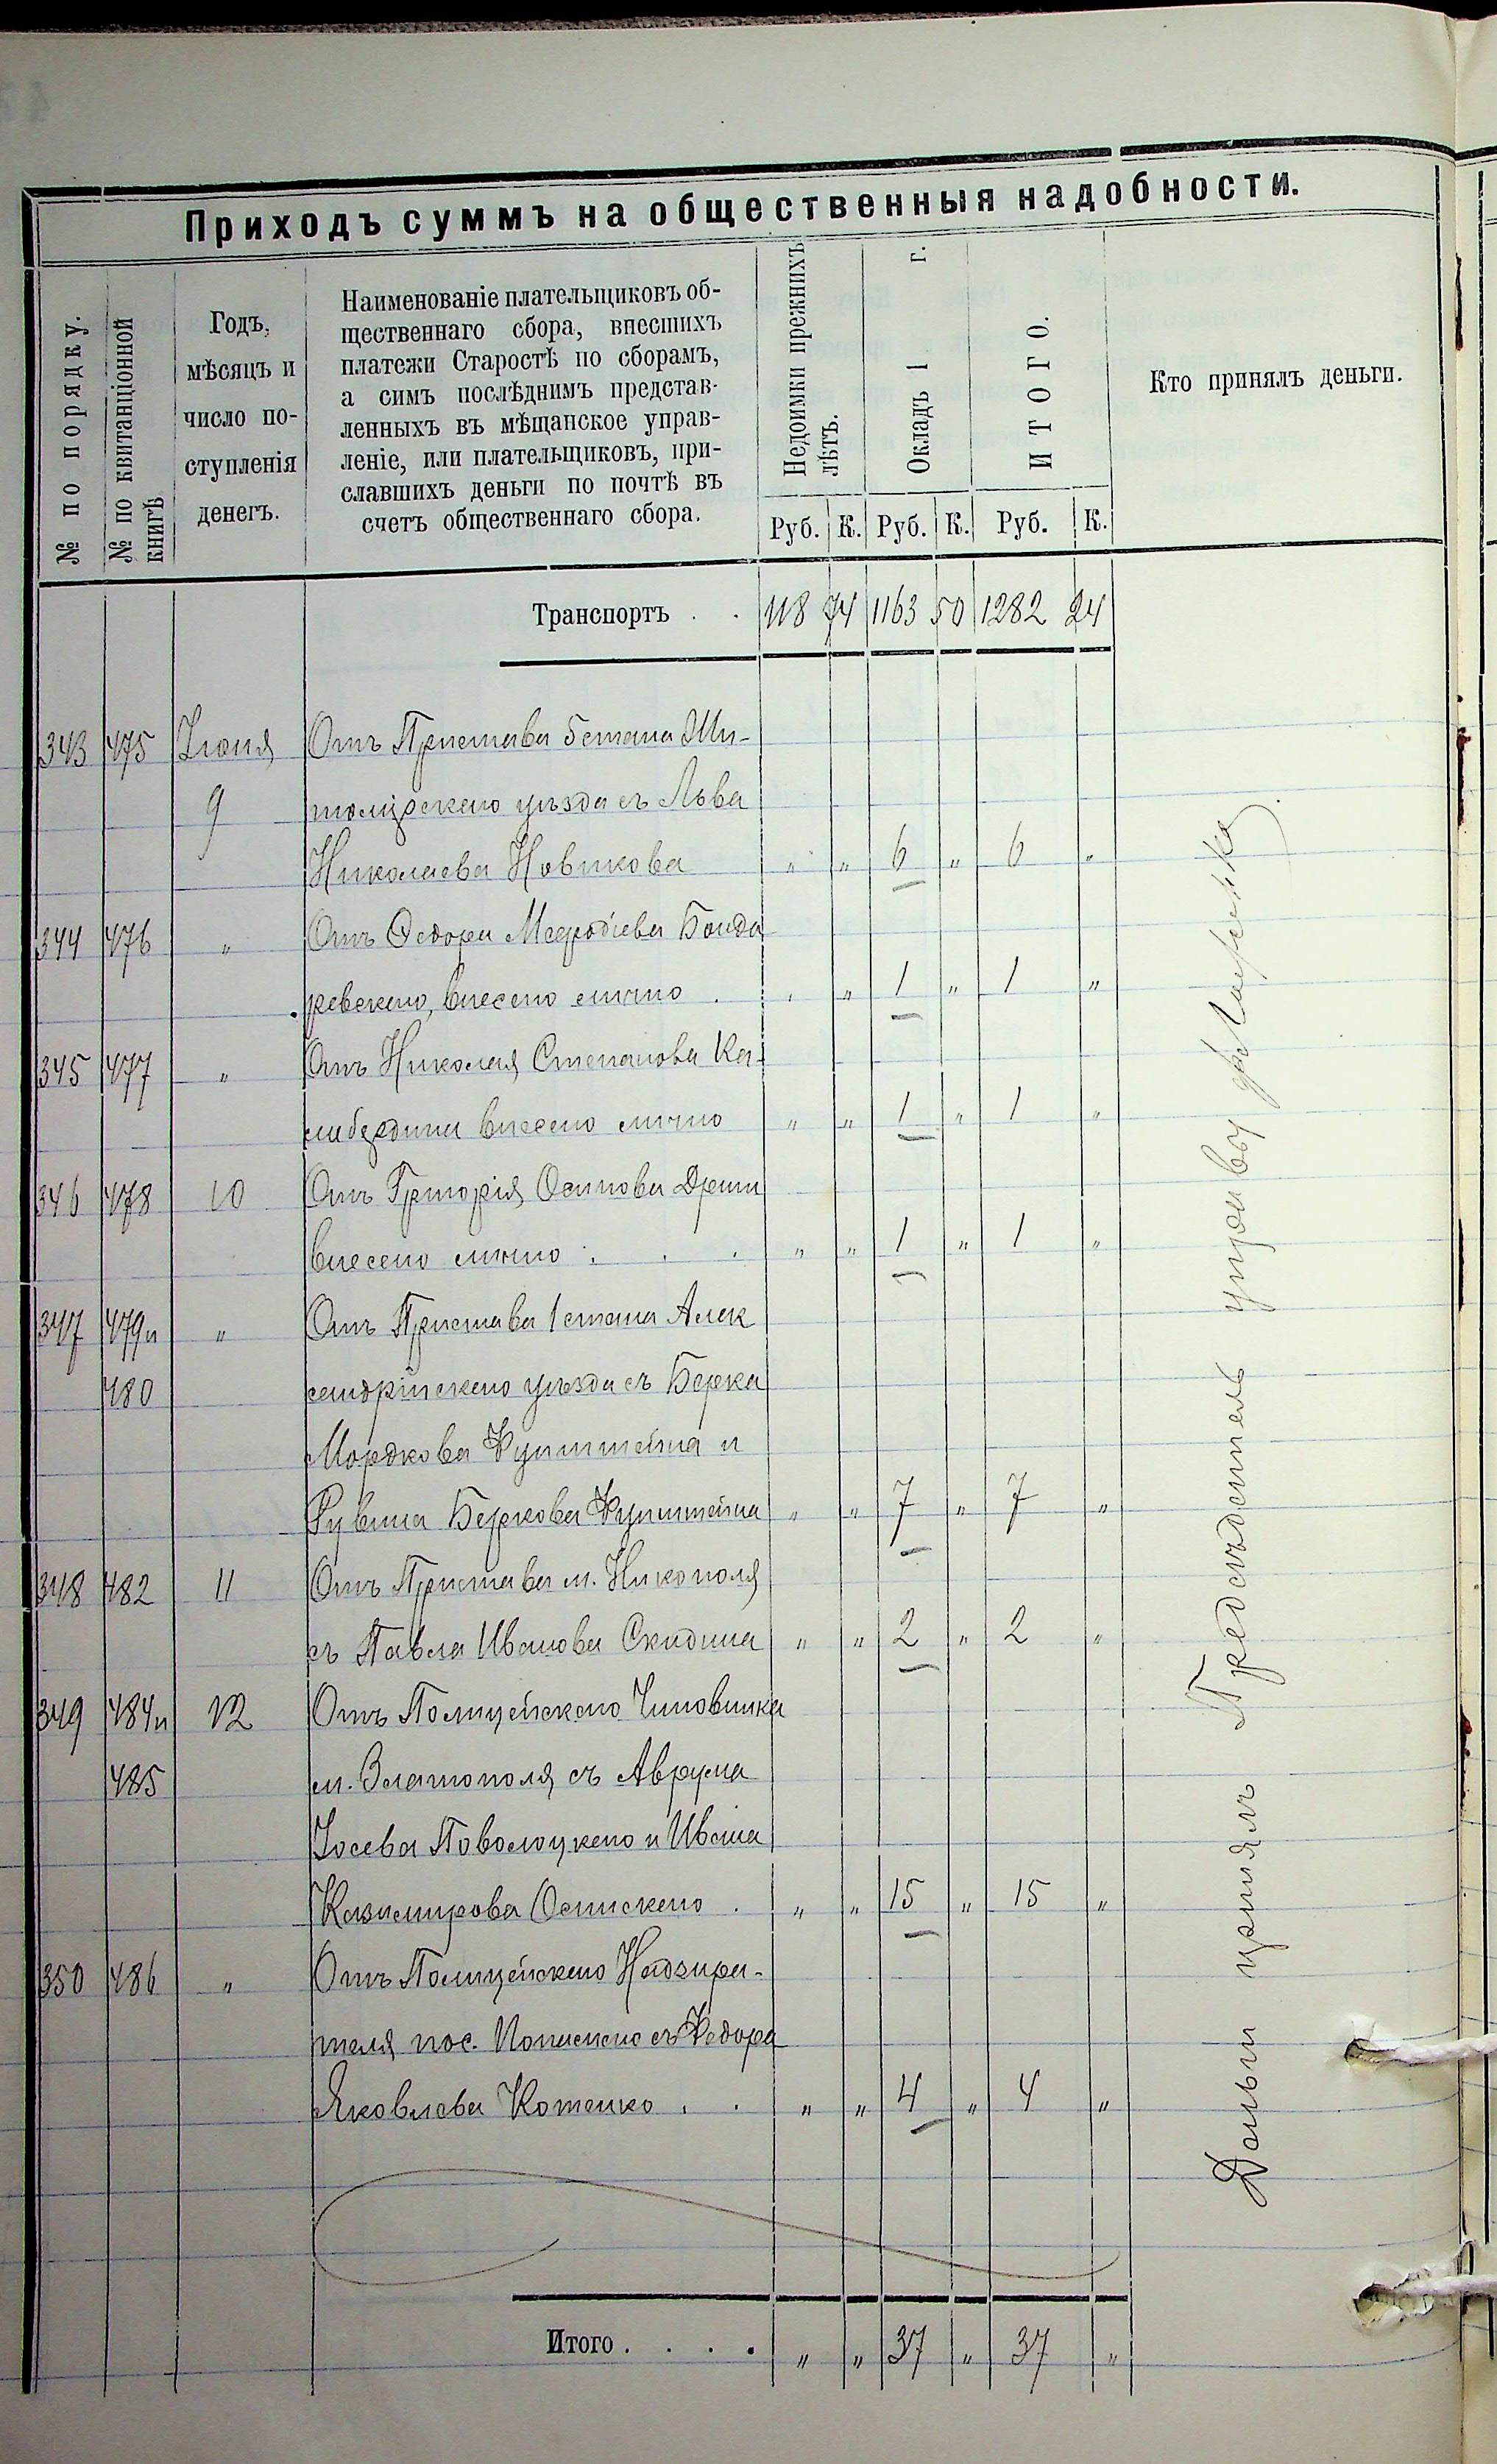 Приходъ суммъ на общественныя надобности.
№ по порядку.
№ по квитанціонной
книгѣ
Годъ,
мѣсяцъ и
число по-
ступленія
денегъ.
Наименованіе плательщиковъ об-
щественнаго сбора, внесшихъ
платежи Старостѣ по сборамъ,
а симъ послѣднимъ представ-
ленныхъ въ мѣщанское управ-
леніе, или плательщиковъ, при-
славшихъ деньги по почтѣ въ
счетъ общественнаго сбора.
Недоимки прежнихъ
лѣтъ.
Окладъ 1 г.
ИТОГО.
Кто принялъ деньги.
Руб. К. Руб. К. Руб. К.
Транспортъ . . 118 74 1163 50 1282 24
343 475 Іюня Отъ Пристава 5 стана Жи-
9 томірскаго уѣзда съ Льва
Николаева Новикова " " 6 " 6 "
344 476 " Отъ Ѳедора Меѳодіева Бонда
ревскаго, внесено лично . " " 1 " 1 "
345 477 " Отъ Николая Степанова Ка-
внесено лично " " 1 " 1 "
346 478 10 Отъ Григорія Осипова
внесено лично . . . " " 1 " 1 "
347 479 и " Отъ Пристава 1 стана Алек
480 сандрійскаго уѣзда съ Берка
Мордкова Фупштейна и
Рувина Беркова Фупштейна " " 7 " 7 "
348 482 11 Отъ Пристава м. Никополя
съ Павла Иванова Скидина " " 2 " 2 "
349 484 и 12 Отъ Полицейскаго Чиновника
485 м. Златополя съ Аврума
Іосева Поволоцкаго и Ивана
Казимирова . " " 15 " 15 "
350 486 " Отъ Полицейскаго Надзира-
теля пос. съ Федора
Яковлева Котенко . . " " 4 " 4 "
Итого . . . . " " 37 " 37 "
Деньги принялъ Предсѣдатель управы